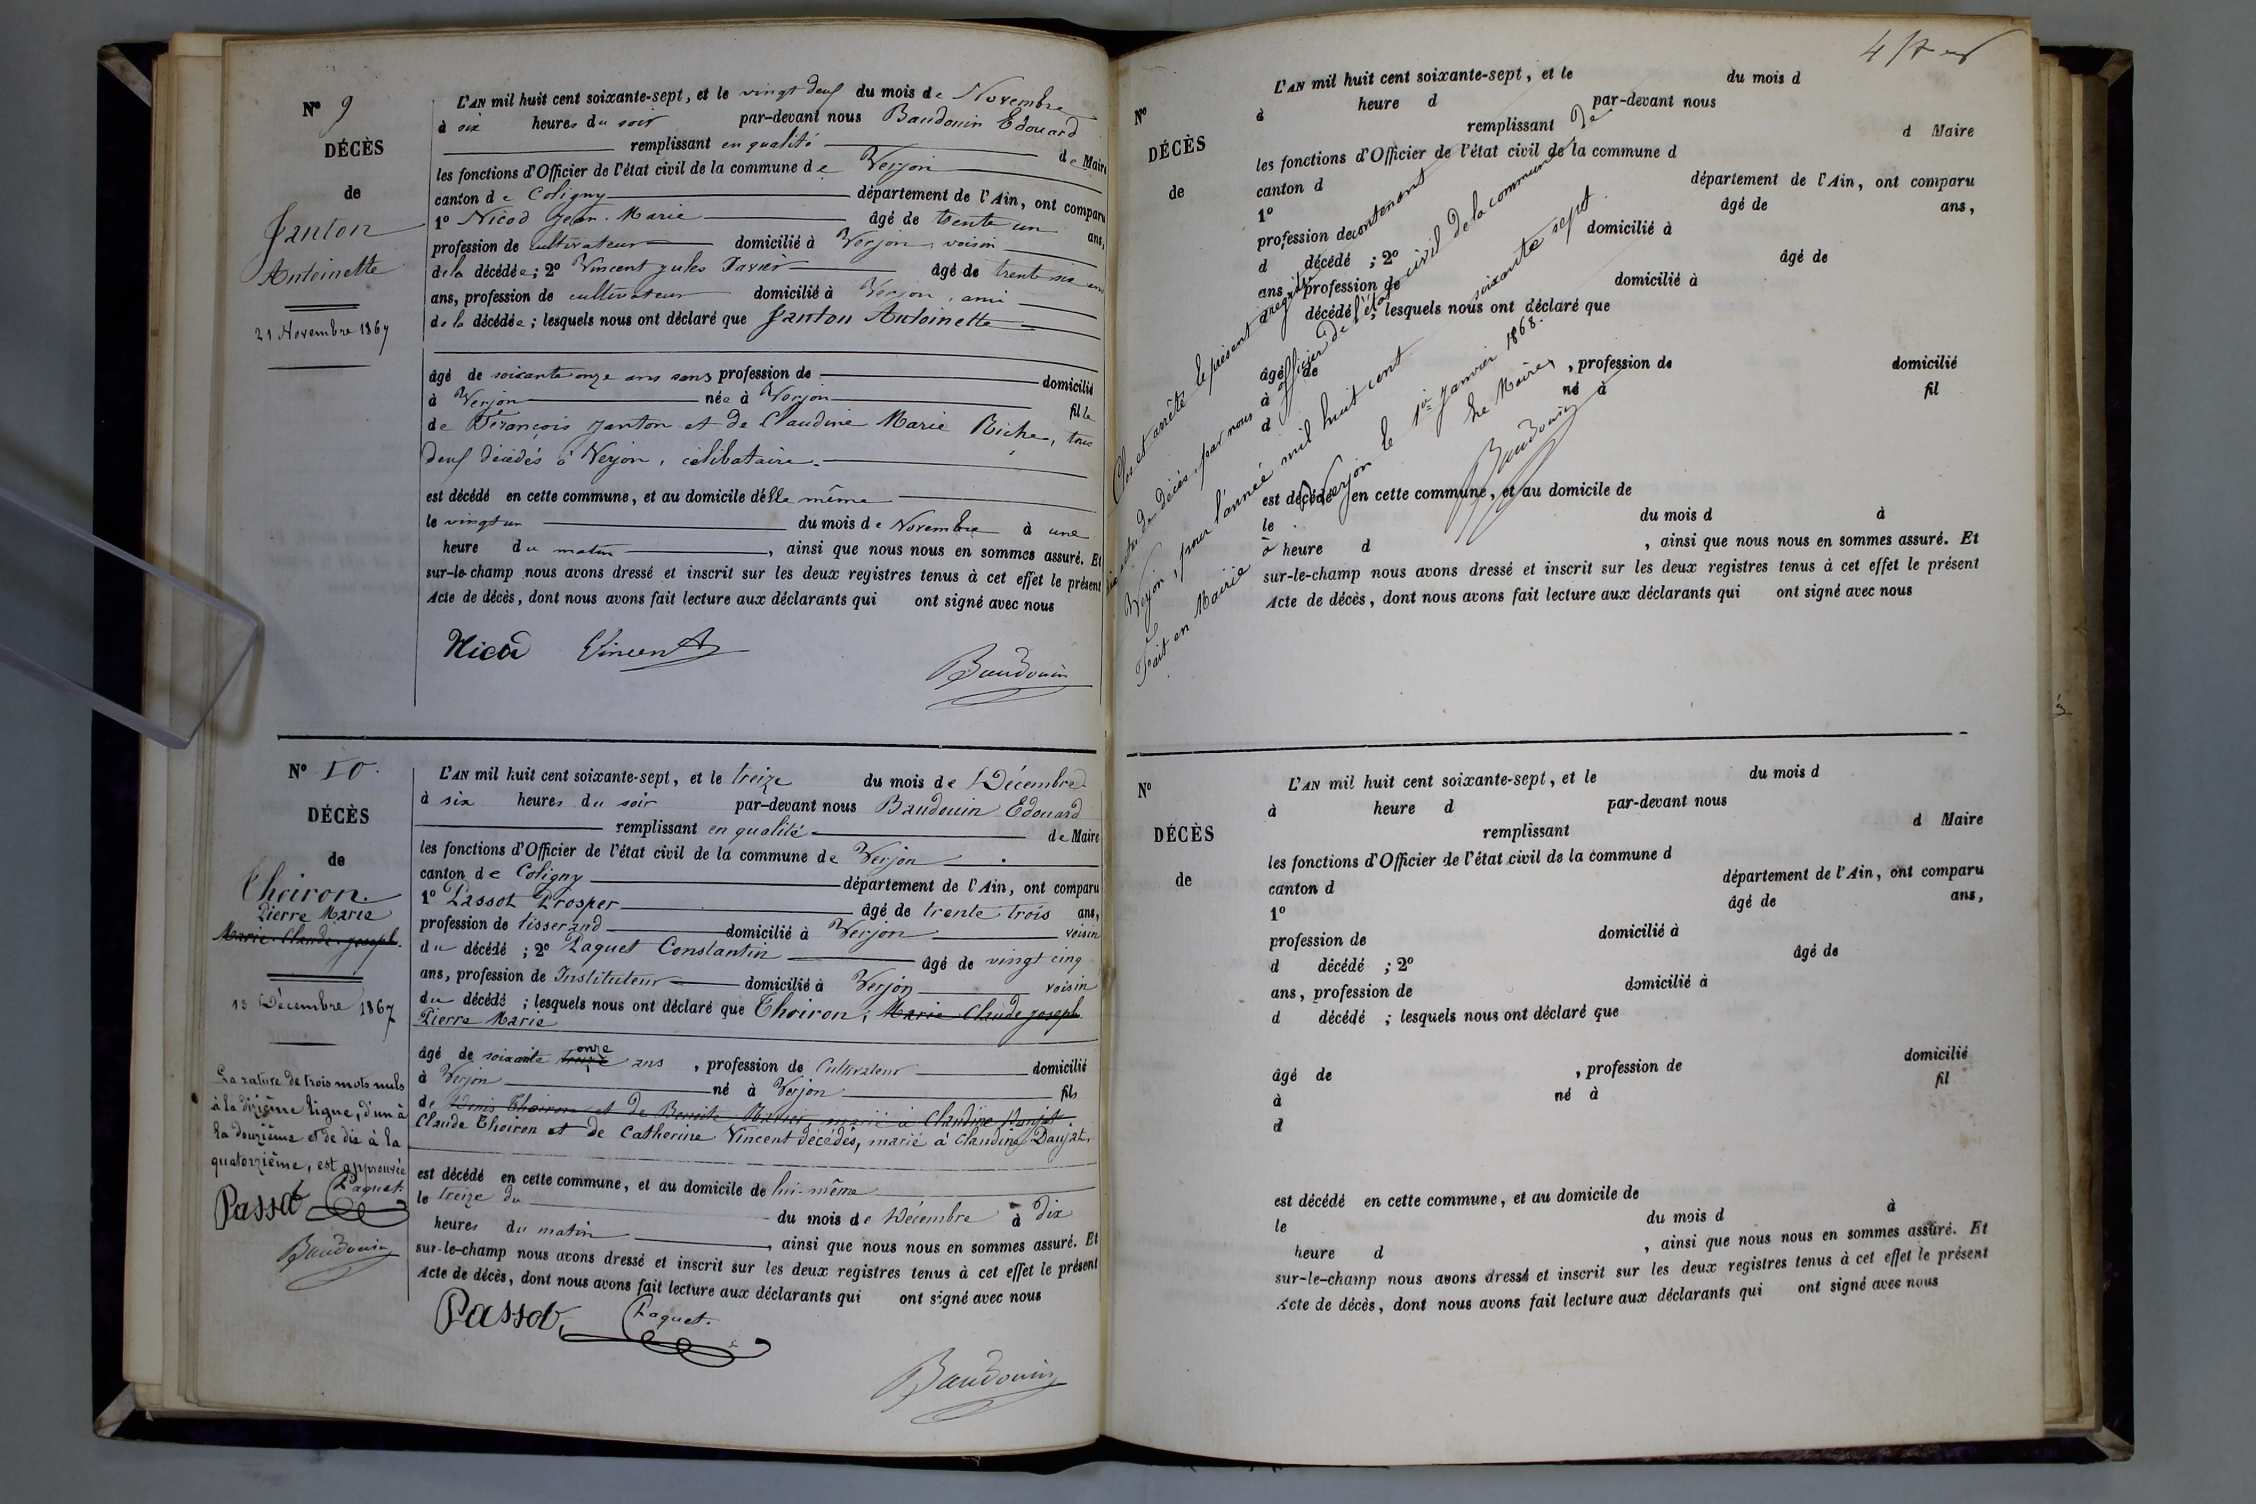 N° 9
DÉCÈS
de
Janton
Antoinette
21 Novembre 1867
L'AN mil huit cent soixante-sept, et le vingt deux du mois de Novembre
à six heures du soir par-devant nous Baudouin Edouard
remplissant en qualité de Maire
les fonctions d'Officier de l'état civil de la commune de Verjon
canton de Coligny département de l'Ain, ont comparu
1° Nicod Jean-Marie âgé de trente un ans,
profession de cultivateur domicilié à Verjon, voisin
de la décédée; 2° Vincent Jules Xavier âgé de trente six
ans, profession de cultivateur domicilié à Verjon, ami
de la décédée; lesquels nous ont déclaré que Janton Antoinette
âgé de soixante onze ans sans profession de domicilié
à Verjon née à Verjon fille
de François Janton et de Claudine Marie Riche, tous
deux décédés à Verjon, célibataire.
est décédé en cette commune, et au domicile d'elle même
le vingt un du mois de Novembre à une
heure du matin, ainsi que nous nous en sommes assuré. Et
sur-le-champ nous avons dressé et inscrit sur les deux registres tenus à cet effet le présent
Acte de décès, dont nous avons fait lecture aux déclarants qui ont signé avec nous
Nicod Vincent
Baudouin
N° 10.
DÉCÈS
de
Thoiron.
Pierre Marie
Marie Claude Joseph.
13 Décembre 1867
La rature de trois mots nuls
à la dixième ligne, d'un à
la douzième et de dix à la
quatorzième, est approuvée
Passot Paquet.
Baudouin
L'AN mil huit cent soixante-sept, et le treize du mois de Décembre
à six heures du soir par-devant nous Baudouin Edouard
remplissant en qualité de Maire
les fonctions d'Officier de l'état civil de la commune de Verjon
canton de Coligny département de l'Ain, ont comparu
1° Passot Prosper âgé de trente trois ans,
profession de tisserand domicilié à Verjon voisin
du décédé; 2° Paquet Constantin âgé de vingt cinq
ans, profession de Instituteur domicilié à Verjon voisin
du décédé; lesquels nous ont déclaré que Thoiron, Marie Claude Joseph
Pierre Marie
onze
âgé de soixante treize ans, profession de Cultivateur domicilié
à Verjon né à Verjon fils
de Denis Thoiron et de Benoite marié à Claudine Daujat
Claude Thoiron et de Catherine Vincent décédés, marié à Claudine Daujat.
est décédé en cette commune, et au domicile de lui-même
le treize du du mois de Décembre à dix
heures du matin, ainsi que nous nous en sommes assuré. Et
sur-le-champ nous avons dressé et inscrit sur les deux registres tenus à cet effet le présent
Acte de décès, dont nous avons fait lecture aux déclarants qui ont signé avec nous
Passot Paquet.
Baudouin
N°
DÉCÈS
de
L'AN mil huit cent soixante-sept, et le du mois d
à heure d par-devant nous
remplissant d Maire
les fonctions d'Officier de l'état civil de la commune d
canton d département de l'Ain, ont comparu
1° âgé de ans,
profession de domicilié à
d décédé ; 2° âgé de
ans, profession de domicilié à
d décédé ; lesquels nous ont déclaré que
âgé de , profession de domicilié
à né à fil
d
est décédé en cette commune, et au domicile de
le du mois d à
heure d , ainsi que nous nous en sommes assuré. Et
sur-le-champ nous avons dressé et inscrit sur les deux registres tenus à cet effet le présent
Acte de décès, dont nous avons fait lecture aux déclarants qui ont signé avec nous
Clos et arrêté le présent registre contenant de
dix actes de décès par nous officier de l'état civil de la commune de
Verjon, pour l'année mil huit cent soixante sept.
Fait en Mairie à Verjon le 1er Janvier 1868.
Le Maire,
Baudouin
N°
DÉCÈS
de
L'AN mil huit cent soixante-sept, et le du mois d
à heure d par-devant nous
remplissant d Maire
les fonctions d'Officier de l'état civil de la commune d
canton d département de l'Ain, ont comparu
1° âgé de ans,
profession de domicilié à
d décédé ; 2° âgé de
ans, profession de domicilié à
d décédé ; lesquels nous ont déclaré que
âgé de , profession de domicilié
à né à fil
d
est décédé en cette commune, et au domicile de
le du mois d à
heure d , ainsi que nous nous en sommes assuré. Et
sur-le-champ nous avons dressé et inscrit sur les deux registres tenus à cet effet le présent
Acte de décès, dont nous avons fait lecture aux déclarants qui ont signé avec nous